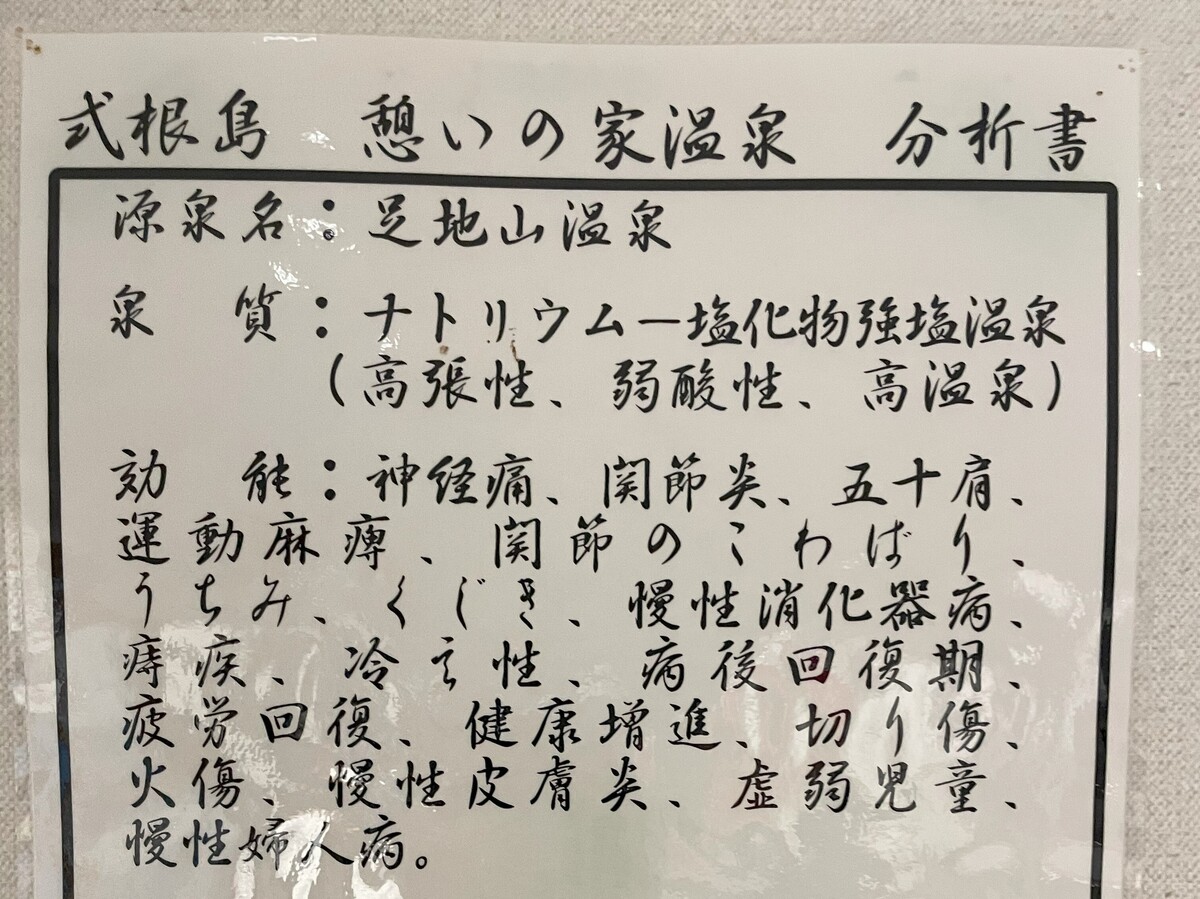 式根島　憩いの家温泉　分析書
源泉名：足地山温泉
泉　質：ナトリウム—塩化物強塩温泉
（高張性、弱酸性、高温泉）
効　能：神経痛、関節炎、五十肩、
運動麻痺、関節のこわばり、
うちみ、くじき、慢性消化器病、
痔疾、冷え性、病後回復期、
疲労回復、健康増進、切り傷、
火傷、慢性皮膚炎、虚弱児童、
慢性婦人病。